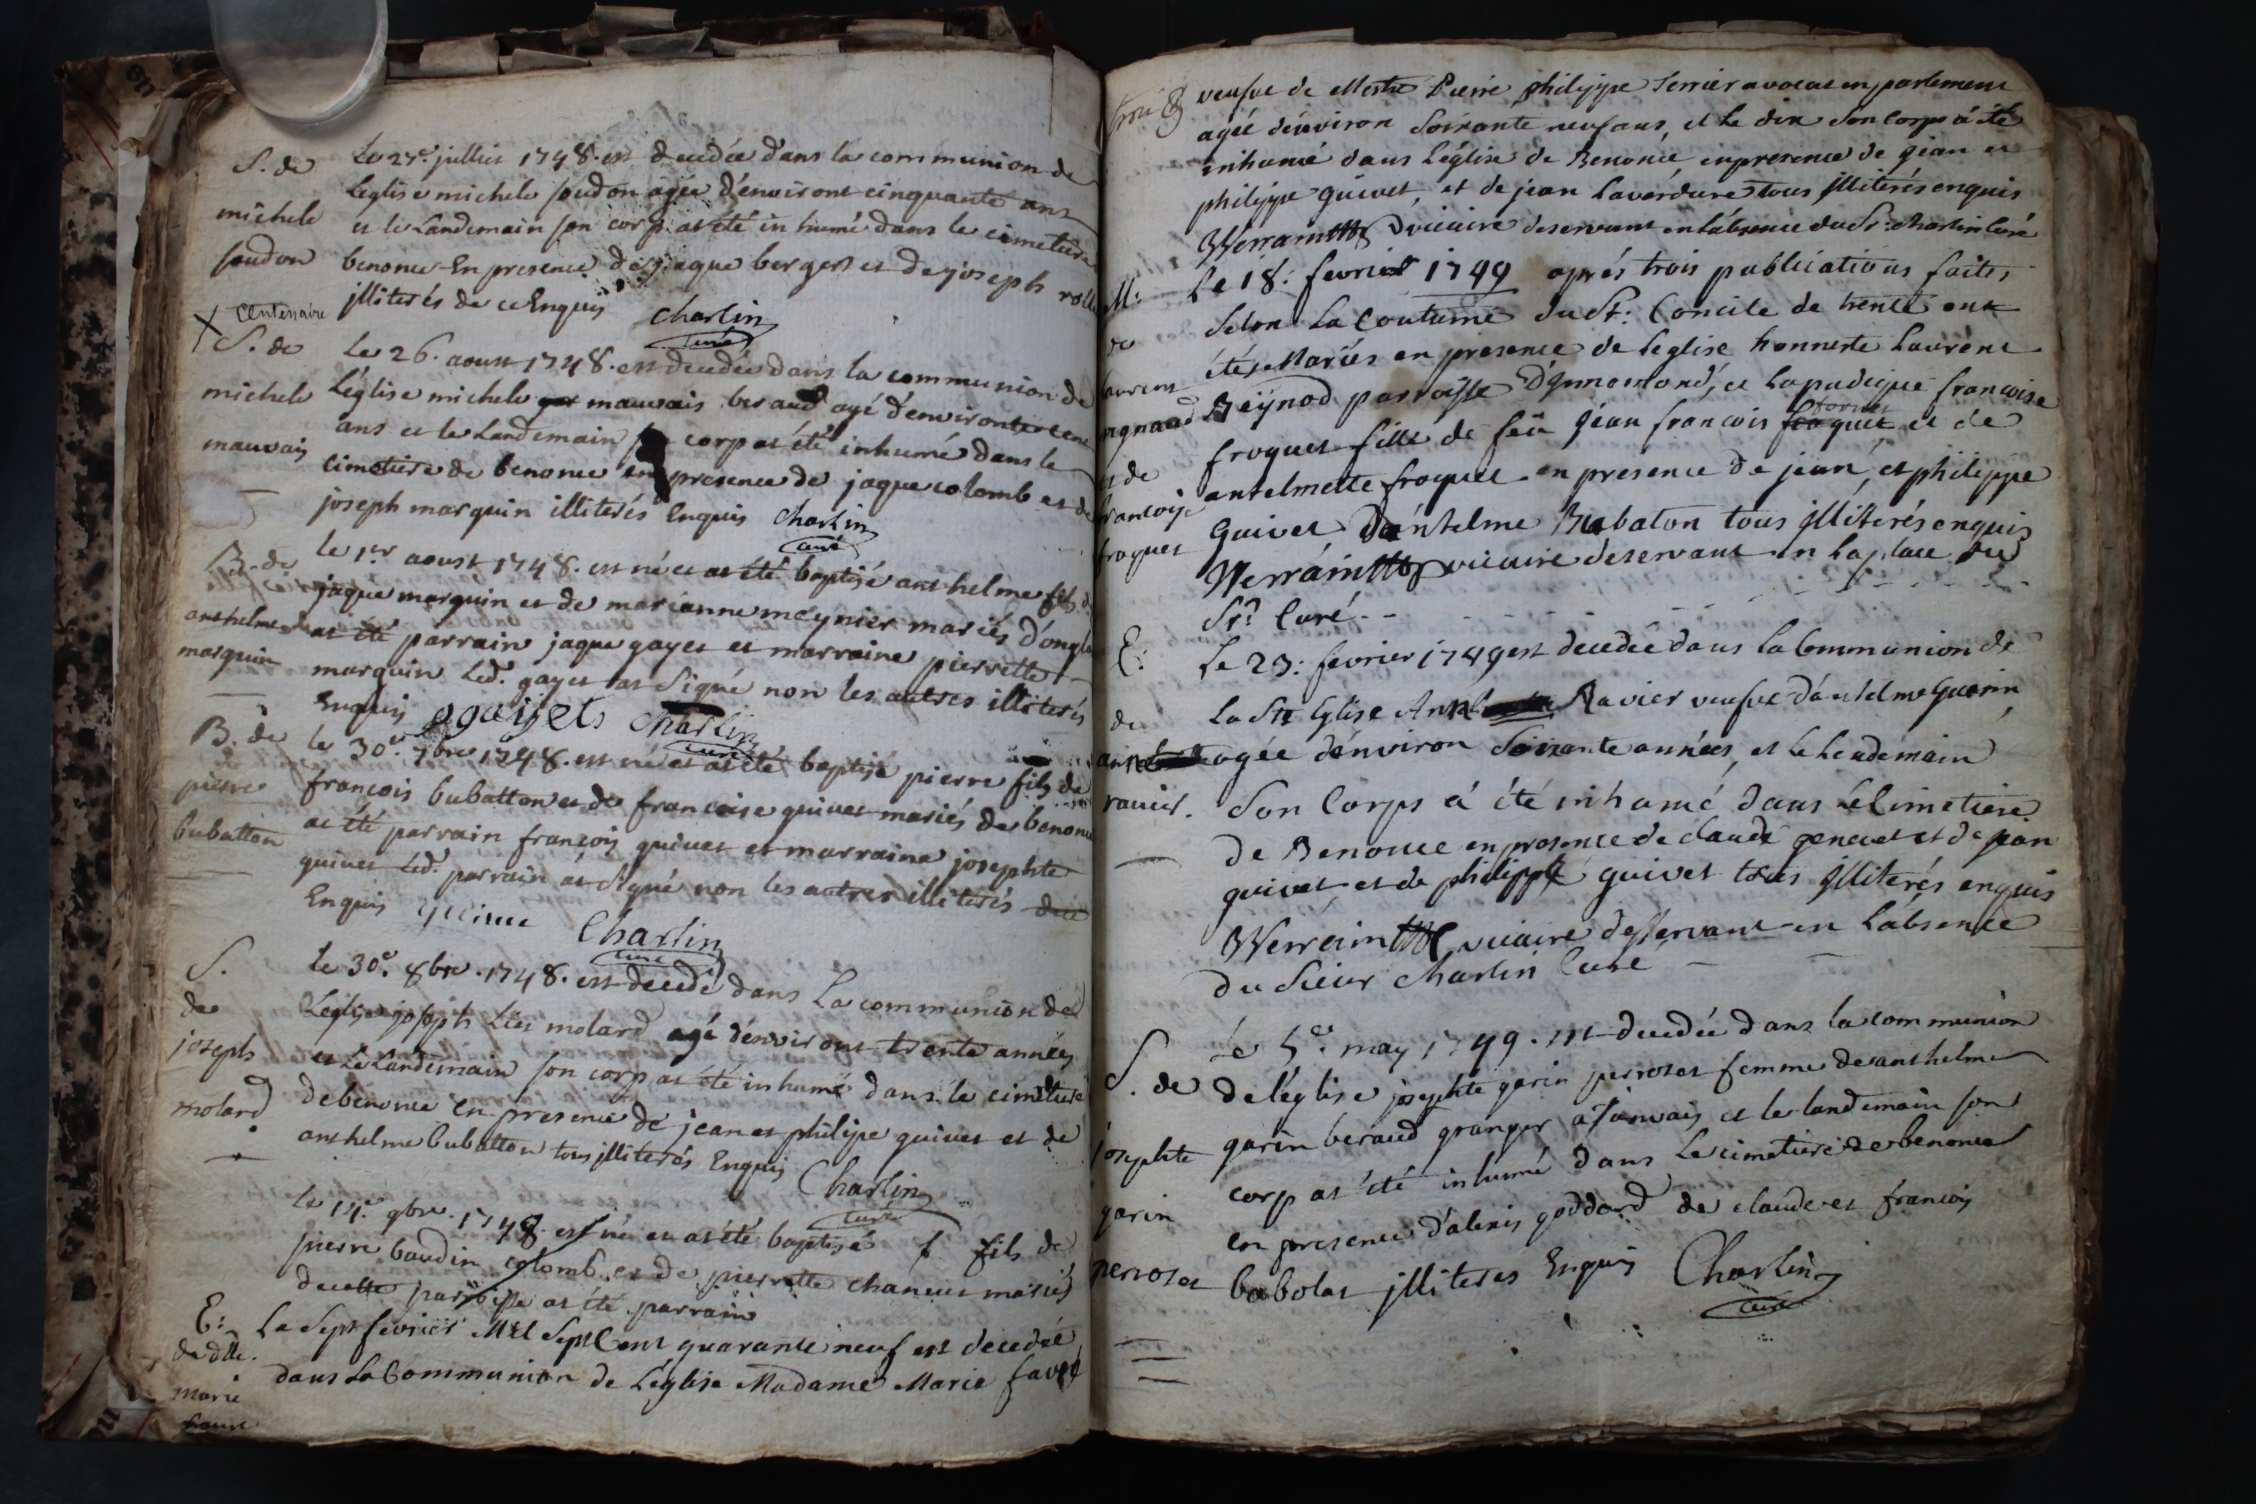 S. de
michele
soudon
Le 27e. juillet 1748. est decedée dans la communion de
Leglise michele soudon agée d'environt cinquante ans
et le Landemain son corp at été inhumé dans le cimetiere
benonce En presence de jaque berger et de joseph
illiterés de ce Enquis
Charlin
curé
X Centenaire
S. de
michele
mauvais
Le 26. aoust 1748. est decedée dans la communion de
Léglise michele mauvais beraud agé d'environt cent
ans et le Landemain corp at été inhumé dans le
cimetiere de benonce en presence de jaque colomb et de
joseph marquin illiterés Enquis
Charlin
curé
B. de
anthelme
marquin
le 1er aoust 1748. est né et at été baptisé anthelme fils de
jaque marquin et de marianne meynier mariés
at été parrain jaque gayet et marraine pierrette
marquin Led. gayet at signé non les autres illiterés
Enquis
Charlin
curé
B. de
pierre
bubatton
le 30e. 7bre 1748. est né et at été baptisé pierre fils de
francois bubatton et de francoise quivet mariés de benonce
at été parrain françois quivet et marraine josephte
quivet Led. parrain at signé non les autres illiterés
Enquis
Charlin
curé
S.
de
joseph
molard
le 30e. 8bre. 1748. est decedé dans La communion de
Léglise joseph molard agé denviront trente années
et Le Landemain son corp at été inhumé dans le cimetiere
de benonce en presence de jean et philipe quivet et de
anthelme bubatton tous illiterés Enquis
Charlin
curé
le 9bre. 1748. est né et at été baptisé f fils de
pierre baudin colomb et de pierrette chaneus mariés
decette parroisse at été parrain
E:
de dlle.
marie
favre
Le Sept fevrier Mil Sept Cent quarante neuf est decedée
dans La Communion de Léglise Madame Marie favre
veufve de Pierre philippe Terrier avocat en parlement
agée d'environ Soixante neuf ans, et le dix son corps a été
inhumé dans Léglise de Benonce en presence de jean et
philippe quivet, et de jean Laverdure tous illiterés enquis
vicaire deservant en Labsence du Sr. Charlin Curé
M:
de
laurens
et de
francoise
froquet
Le 18: fevrier 1749 aprés trois publications faites
Selon La Coutume du St: Concile de trente ont
étés Mariés en presence de Leglise honneste Laurent
Reÿnod parroisse et La pudique francoise
froquet fille de feu jean francois et de
antelmette froquet en presence de jean, et philippe
Quivet D'antelme Bubaton tous illiterés enquis
vicaire deservant en La place du
Sr. Curé
E:
de
ravier.
Le 23: fevrier 1749 est decedée dans La Communion de
La Ste Eglise Ravier veufve d'antelme Guerin
agée d'environ Soixante années, et le Lendemain
Son Corps a été inhumé dans Cimetiere
De Benonce en presence de claude et de jean
quivet et de philippe quivet tous illiterés enquis
vicaire desservant en Labsence
Du Sieur Charlin Curé
S. de
josephte
garin
perrosat
Le 5e. may 1749. est decedée dans la communion
de léglise josephte garin perrosat femme de anthelme
garin beraud granger et le landemain son
corp at été inhumé dans Le cimetiere de benonce
en presence d'alexis goddard de claude et francois
babolat illiteres Enquis
Charlin
curé